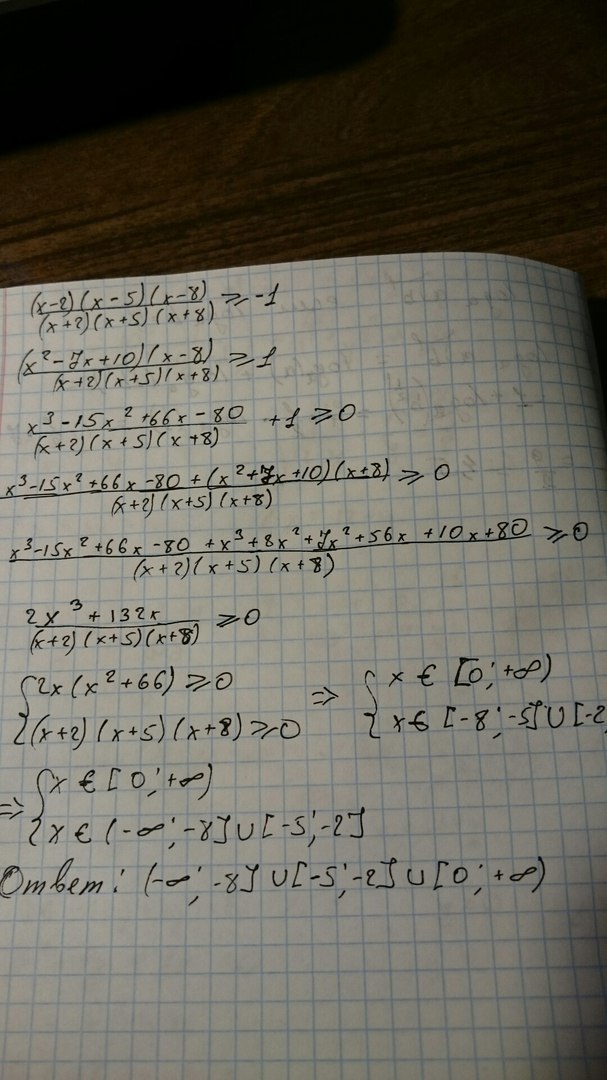 (x-2)(x-5)(x-8)/(x+2)(x+5)(x+8) ≥ -1
(x²-7x+10)(x-8)/(x+2)(x+5)(x+8) ≥ 1
x³-15x²+66x-80/(x+2)(x+5)(x+8) +1 ≥ 0
x³-15x²+66x-80+(x²+7x+10)(x+8)/(x+2)(x+5)(x+8) ≥ 0
x³-15x²+66x-80+x³+8x²+7x²+56x+10x+80/(x+2)(x+5)(x+8) ≥ 0
2x³+132x/(x+2)(x+5)(x+8) ≥ 0
{2x(x²+66) ≥ 0 ⇒ {x ∈ [0;+∞)
{(x+2)(x+5)(x+8) ≥ 0 {x ∈ [-8;-5]∪[-2
⇒ {x ∈ [0;+∞)
{x ∈ (-∞;-8]∪[-5;-2]
Ответ: (-∞;-8]∪[-5;-2]∪[0;+∞)